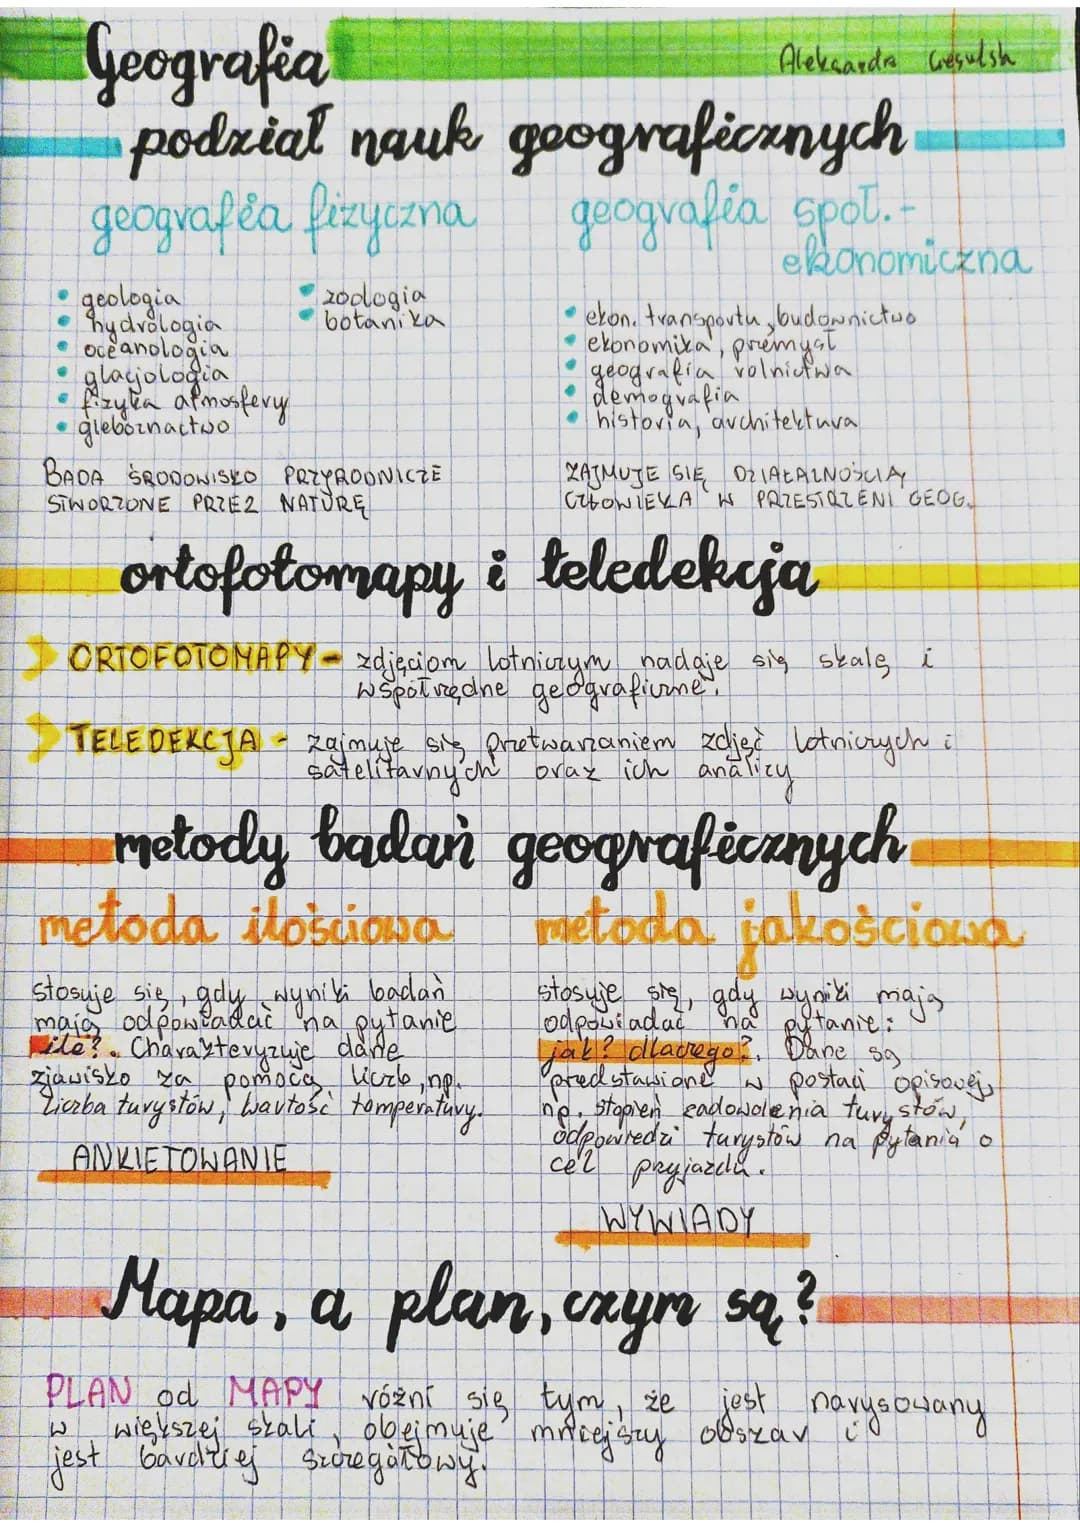 Geografia
Aleksandra
podział nauk geograficznych
geografia fizyczna
geografia społ.-
ekonomiczna
• geologia
• hydrologia
• oceanologia
• glacjologia
• fizyka atmosfery
• gleboznactwo
• zoologia
• botanika
• ekon. transportu, budownictwo
• ekonomika, przemysł
• geografia rolnictwa
• demografia
• historia, architektura
BADA ŚRODOWISKO PRZYRODNICZE
STWORZONE PRZEZ NATURĘ
ZAJMUJE SIĘ DZIAŁALNOŚCIĄ
CZŁOWIEKA W PRZESTRZENI GEOG.
ortofotomapy i teledekcja
ORTOFOTOMAPY - zdjęciom lotniczym nadaje się skalę i
współrzędne geograficzne.
TELEDEKCJA - zajmuje się przetwarzaniem zdjęć lotniczych i
satelitarnych oraz ich analizy
metody badań geograficznych
metoda ilościowa
stosuje się, gdy wyniki badań
mają odpowiadać na pytanie
ile?. Charakteryzuje dane
zjawisko za pomocą liczb, np.
liczba turystów, wartość temperatury.
ANKIETOWANIE
metoda jakościowa
stosuje się, gdy wyniki mają
odpowiadać na pytanie:
jak? dlaczego?. Dane są
przedstawione w postaci opisowej,
np. stopień zadowolenia turystów,
odpowiedzi turystów na pytania o
cel przyjazdu.
WYWIADY
Mapa, a plan, czym są?
PLAN od MAPY różni się tym, że jest narysowany
w większej skali, obejmuje mniejszy obszar i
jest bardziej szczegółowy.